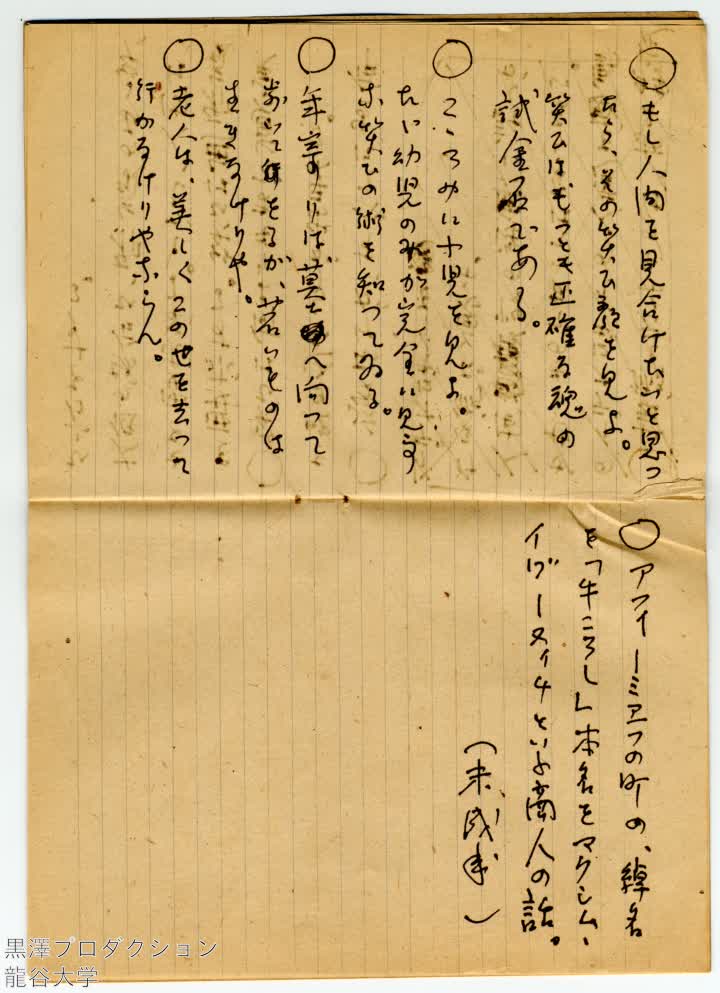 ○もし人間を見分けたいと思つ
たら、その笑ひ顔を見よ。
笑ひはもつとも正確な魂の
試金石である。
○こゝろみに小児を見よ。
たゞ幼児のみが完全に見事
な笑ひの術を知つてゐる。
○年寄りは墓へ向つて
あいてゐるが、若いものは
生きなけりや。
○老人は、美しくこの世を去つて
行かなけりやならん。
○アフイーミエフの町の、綽名
を「牛ころし」本名をマクシム・
イヴーヌイチといふ商人の話。
(未成年)
黒澤プロダクション
龍谷大学